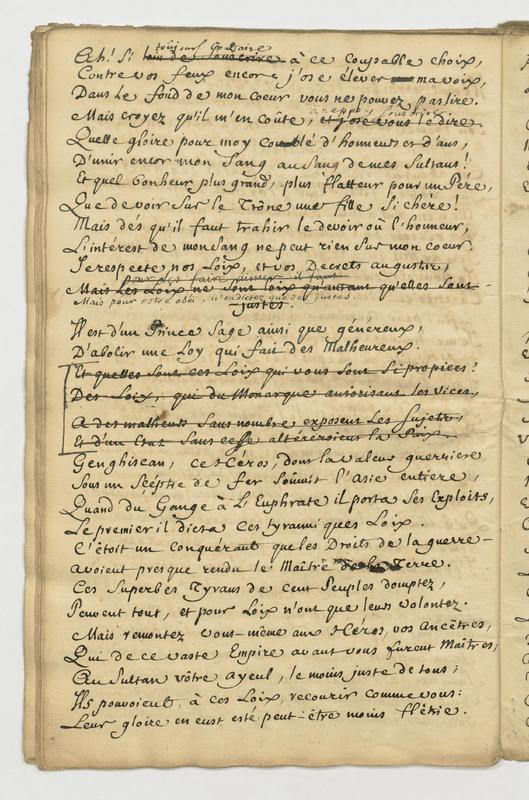 toûjours contraire
Ah! Si loin de souscrire à ce coupable choix,
Contre vos feux encore j'ose élever ma voix,
Dans le fond de mon coeur vous ne pouvez pas lire.
Mais croyez qu'il m'en coûte, et j'ose vous le dire
Quelle gloire pour moy comblé d'honneurs et d'ans,
D'unir encor mon Sang au Sang de mes Sultans!
Et quel bonheur plus grand, plus flatteur pour un Pére,
Que de voir sur le Trône une fille si chére!
Mais dés qu'il faut trahir le devoir où l'honneur,
L'intérest de mon sang ne peut rien sur mon coeur.
Je respecte nos Loix, et vos Decrets augustes;
Pour les faire aimer il faut
Mais Les Loix ne sont loix qu'autant qu'elles sont
Mais pour estre obéi, n'en dictez que de justes.
justes.
Il est d'un Prince sage ainsi que généreux,
D'abolir une Loy qui fait des Malheureux.
Et quelles sont ces Loix qui vous sont si propices?
Des Loix, qui du Monarque autorisant les vices,
A des malheurs sans nombre exposent Les sujets,
Et d'un Etat sans cesse altéreroient la Paix.
Genghiscan, ce Héros, dont la valeur guerriere
Sous un Sceptre de fer soûmit l'Asie entiere,
Quand du Gange à L'Euphrate il porta ses Exploits,
Le premier il dicta ces tyranniques Loix.
C'étoit un Conquérant que les Droits de la guerre
avoient presque rendu le Maître de la Terre.
Ces Superbes Tyrans de cent Peuples domptez,
Peuvent tout, et pour Loix n'ont que leurs volontez.
Mais remontez vous-même aux Héros, vos Ancêtres,
Qui de ce vaste Empire avant vous furent Maîtres;
Au Sultan vôtre ayeul, le moins juste de tous;
Ils pouvoient, à ces Loix, recourir comme vous:
Leur gloire en eust esté peut-être moins flétrie.